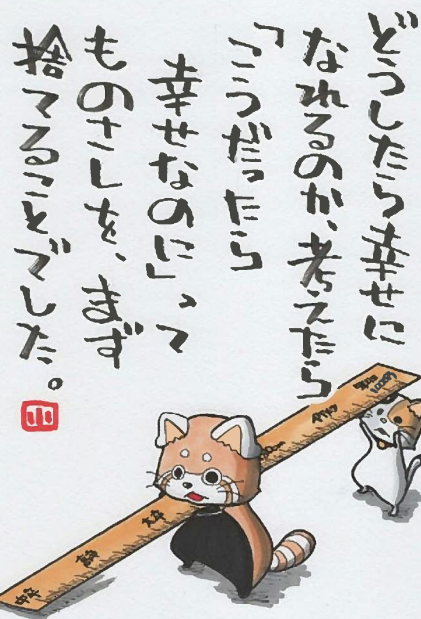 どうしたら幸せに
なれるのか、考えたら
「こうだったら
幸せなのに」って
ものさしを、まず
捨てることでした。
小
中卒
高卒
大卒